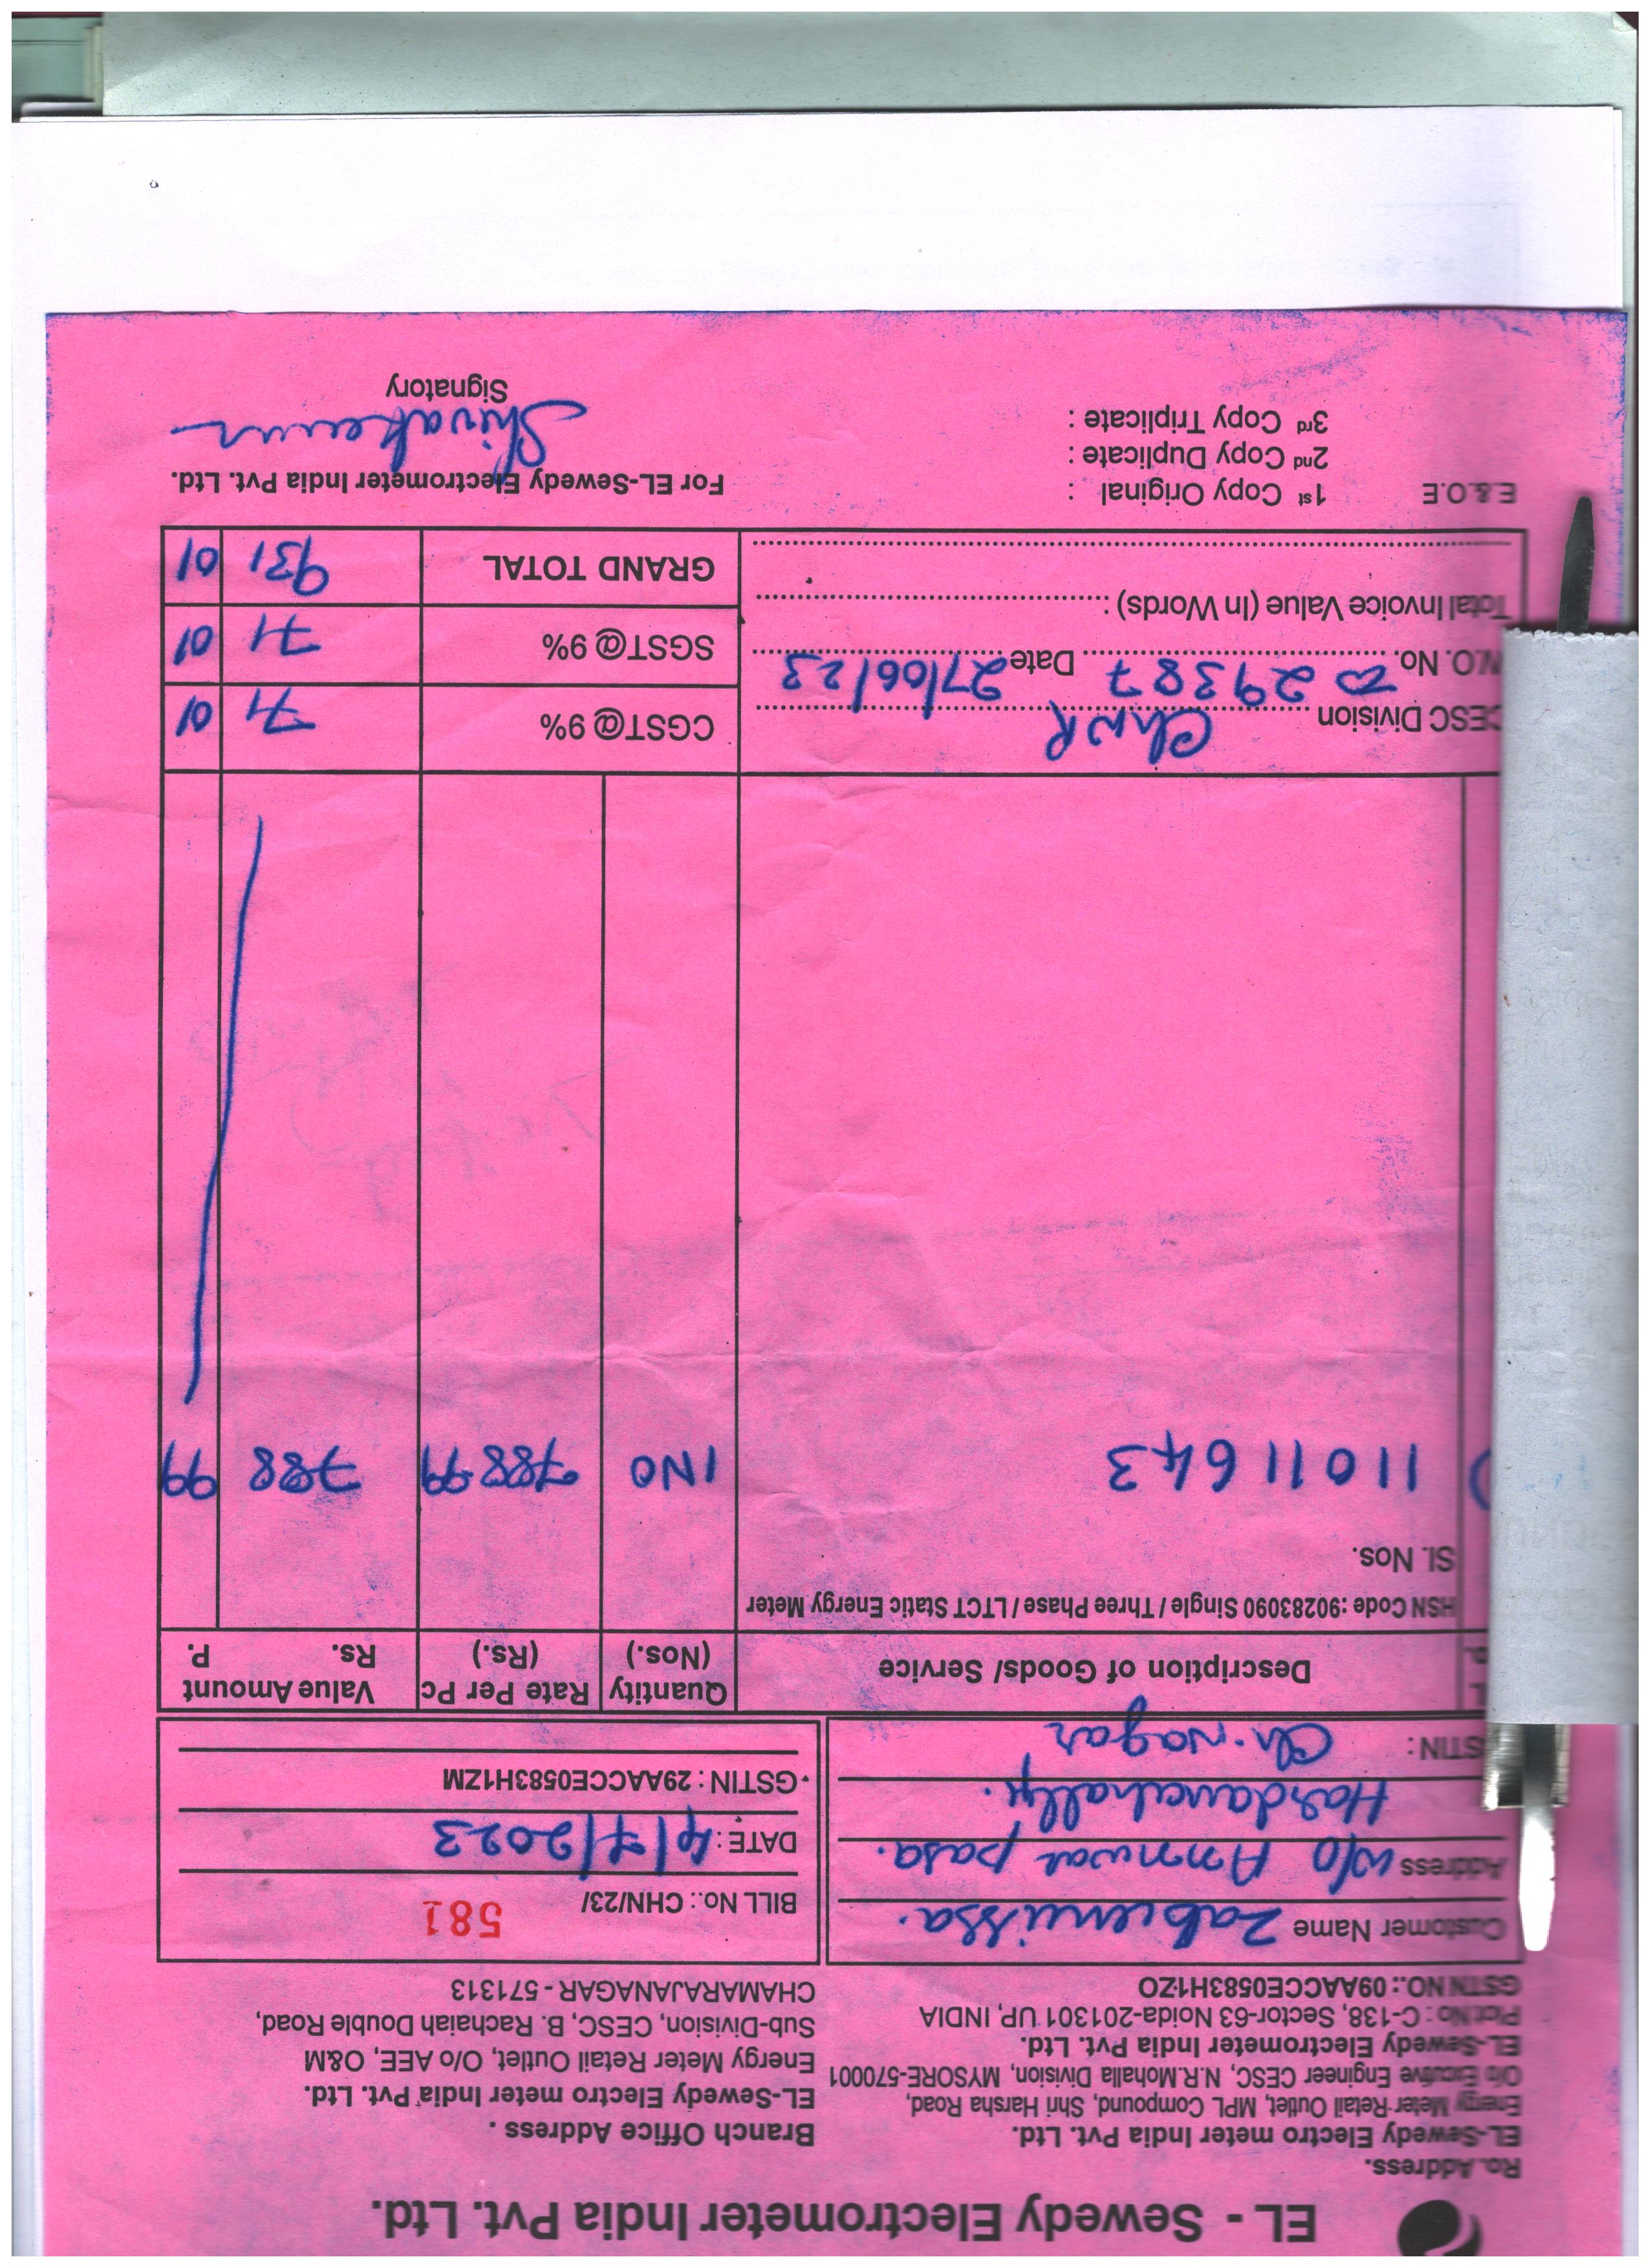 EL - Sewedy Electrometer India Pvt. Ltd.
Ro. Address.
EL-Sewedy Electro meter India Pvt. Ltd.
Energy Meter Retail Outlet, MPL Compound, Shri Harsha Road,
O/o Excutive Engineer CESC, N.R.Mohalla Division, MYSORE-570001
EL-Sewedy Electrometer India Pvt. Ltd.
Plot No : C-138, Sector-63 Noida-201301 UP, INDIA
GSTN NO.: 09AACCE0583H1ZO
Branch Office Address .
EL-Sewedy Electro meter India Pvt. Ltd.
Energy Meter Retail Outlet, O/o AEE, O&M
Sub-Division, CESC, B. Rachaiah Double Road,
CHAMARAJANAGAR - 571313
Customer Name Zabienissa.
Address W/o Annwar pasa.
Hardanahally.
STIN : Ch. nagar
BILL No.: CHN/23/ 581
DATE: 4/7/2023
GSTIN : 29AACCE0583H1ZM
Description of Goods/ Service
Quantity (Nos.)
Rate Per Pc (Rs.)
Value Amount Rs. P.
HSN Code :90283090 Single / Three Phase / LTCT Static Energy Meter
Sl. Nos.
) 11011643 1NO 788.99 788 99
CESC Division ChNR
W.O. No. 29387 Date 27/06/23
Total Invoice Value (In Words) :
CGST@ 9% 71 01
SGST@ 9% 71 01
GRAND TOTAL 931 01
E.& O.E
1st Copy Original :
2nd Copy Duplicate :
3rd Copy Triplicate :
For EL-Sewedy Electrometer India Pvt. Ltd.
Shivakumar
Signatory